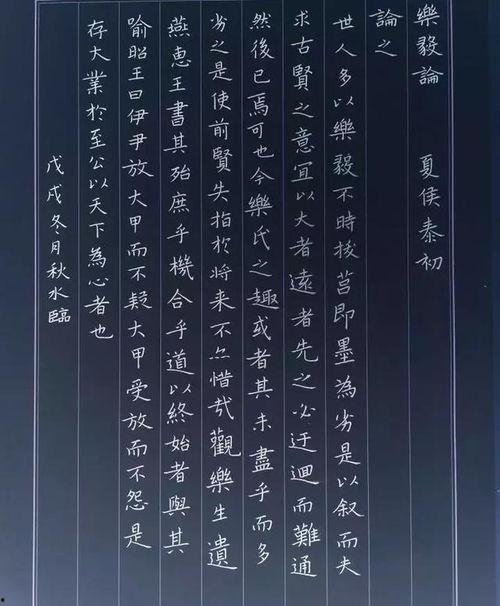 樂毅論 夏侯泰初
論之
世人多以樂毅不時拔莒即墨為劣是以叙而夫
求古賢之意宜以大者遠者先之必迂迴而難通
然後已焉可也今樂氏之趣或者其未盡乎而多
劣之是使前賢失指於将来不忽惜哉觀樂生遺
燕恵王書其殆庶乎機合乎道以終始者與其
喻昭王曰伊尹放大甲而不疑大甲受放而不怨是
存大業於至公以天下為心者也
戊戌冬月秋水臨